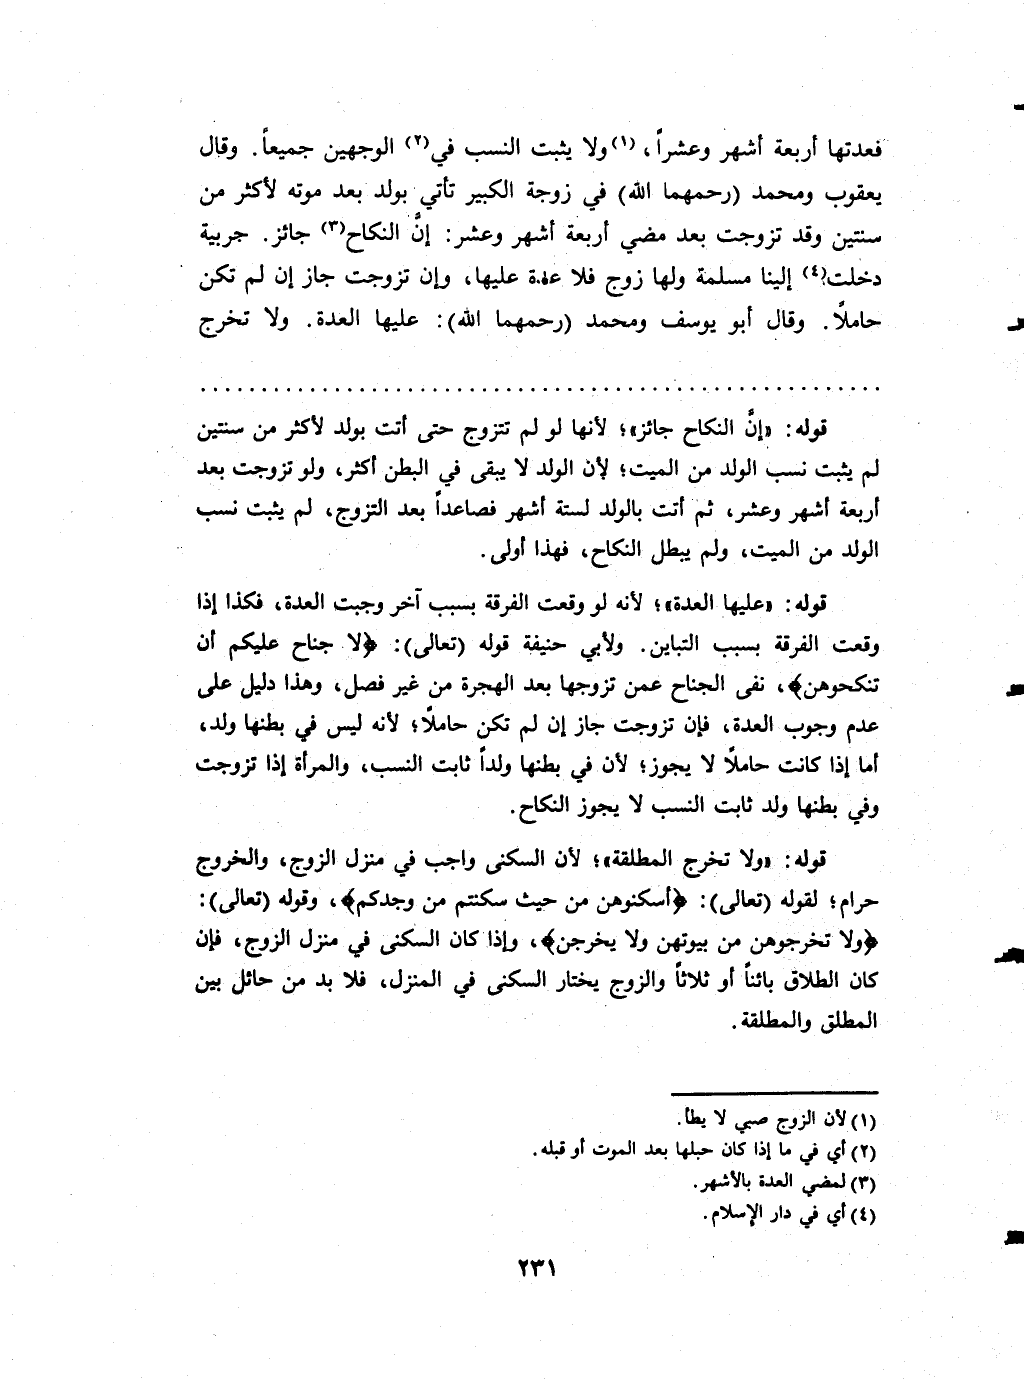 فعدتها أربعة أشهر وعشراً، (١) ولا يثبت النسب في(٢) الوجهين جميعاً. وقال
يعقوب ومحمد (رحمهما الله) في زوجة الكبير تأتي بولد بعد موته لأكثر من
سنتين وقد تزوجت بعد مضي أربعة أشهر وعشر: إنَّ النكاح(٣) جائز. حربية
دخلت(٤) إلينا مسلمة ولها زوج فلا عدة عليها، وإن تزوجت جاز إن لم تكن
حاملاً. وقال أبو يوسف ومحمد (رحمهما الله): عليها العدة. ولا تخرج
قوله: «إنَّ النكاح جائز»؛ لأنها لو لم تتزوج حتى أتت بولد لأكثر من سنتين
لم يثبت نسب الولد من الميت؛ لأن الولد لا يبقى في البطن أكثر، ولو تزوجت بعد
أربعة أشهر وعشر، ثم أتت بالولد لستة أشهر فصاعداً بعد التزوج، لم يثبت نسب
الولد من الميت، ولم يبطل النكاح، فهذا أولى.
قوله: «عليها العدة»؛ لأنه لو وقعت الفرقة بسبب آخر وجبت العدة، فكذا إذا
وقعت الفرقة بسبب التباين. ولأبي حنيفة قوله (تعالى): ﴿لا جناح عليكم أن
تنكحوهن﴾، نفى الجناح عمن تزوجها بعد الهجرة من غير فصل، وهذا دليل على
عدم وجوب العدة، فإن تزوجت جاز إن لم تكن حاملاً؛ لأنه ليس في بطنها ولد،
أما إذا كانت حاملاً لا يجوز؛ لأن في بطنها ولداً ثابت النسب، والمرأة إذا تزوجت
وفي بطنها ولد ثابت النسب لا يجوز النكاح.
قوله: «ولا تخرج المطلقة»؛ لأن السكنى واجب في منزل الزوج، والخروج
حرام؛ لقوله (تعالى): ﴿أسكنوهن من حيث سكنتم من وجدكم﴾، وقوله (تعالى):
﴿ولا تخرجوهن من بيوتهن ولا يخرجن﴾، وإذا كان السكنى في منزل الزوج، فإن
كان الطلاق بائناً أو ثلاثاً والزوج يختار السكنى في المنزل، فلا بد من حائل بين
المطلق والمطلقة.
(١) لأن الزوج صبي لا يطأ.
(٢) أي في ما إذا كان حبلها بعد الموت أو قبله.
(٣) لمضي العدة بالأشهر.
(٤) أي في دار الإسلام.
٢٣١